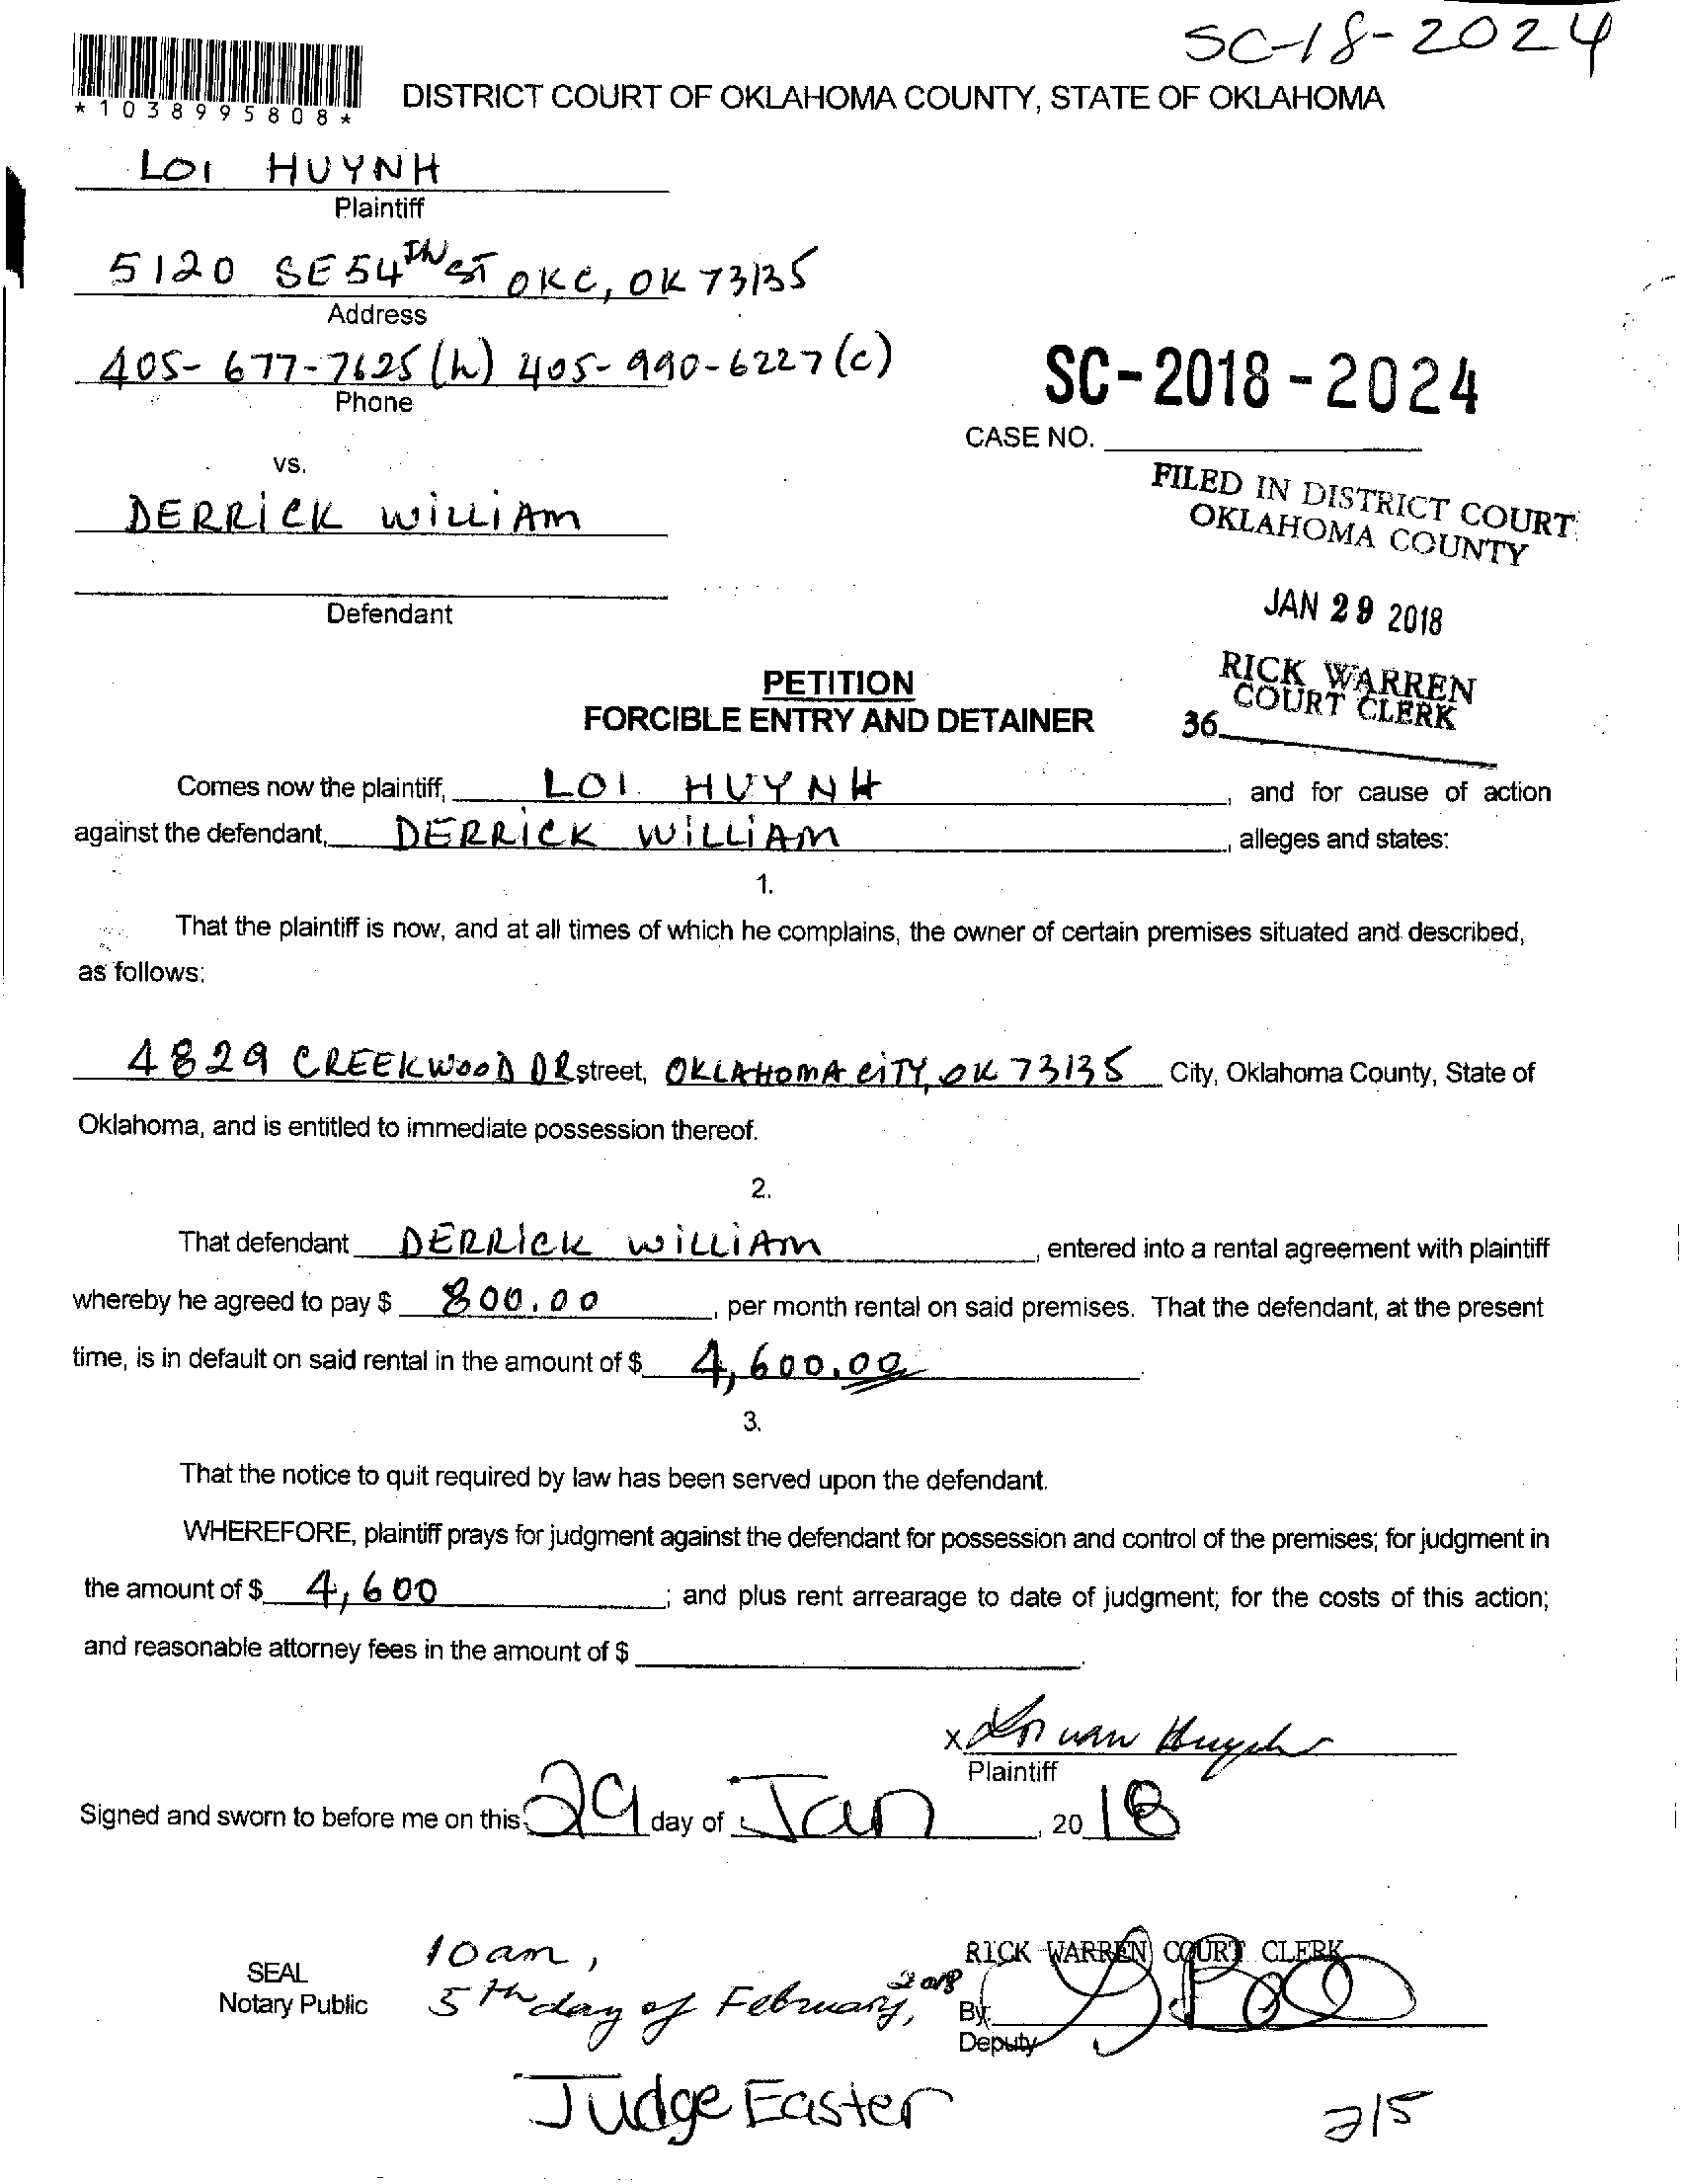 SC-18-2024
*1038995808*
DISTRICT COURT OF OKLAHOMA COUNTY, STATE OF OKLAHOMA
LOI HUYNH
Plaintiff
5120 SE 54TH ST OKC, OK 73135
Address
405-677-7625 (h) 405-990-6227 (c)
Phone
SC-2018-2024
CASE NO.
vs.
DERRICK WILLIAM
Defendant
FILED IN DISTRICT COURT
OKLAHOMA COUNTY
JAN 29 2018
RICK WARREN
COURT CLERK
36
PETITION
FORCIBLE ENTRY AND DETAINER
Comes now the plaintiff, LOI HUYNH, and for cause of action
against the defendant, DERRICK WILLIAM, alleges and states:
1.
That the plaintiff is now, and at all times of which he complains, the owner of certain premises situated and described,
as follows:
4829 CREEKWOOD DR street, OKLAHOMA CITY, OK 73135 City, Oklahoma County, State of
Oklahoma, and is entitled to immediate possession thereof.
2.
That defendant DERRICK WILLIAM, entered into a rental agreement with plaintiff
whereby he agreed to pay $ 800.00, per month rental on said premises. That the defendant, at the present
time, is in default on said rental in the amount of $ 4,600.00
3.
That the notice to quit required by law has been served upon the defendant.
WHEREFORE, plaintiff prays for judgment against the defendant for possession and control of the premises; for judgment in
the amount of $ 4,600; and plus rent arrearage to date of judgment; for the costs of this action;
and reasonable attorney fees in the amount of $
x Loi van Huynh
Plaintiff
Signed and sworn to before me on this 29 day of Jan, 20 18
SEAL
Notary Public
10am,
5th day of February, 2018
RICK WARREN COURT CLERK
By:
Deputy
Judge Easter
2/5